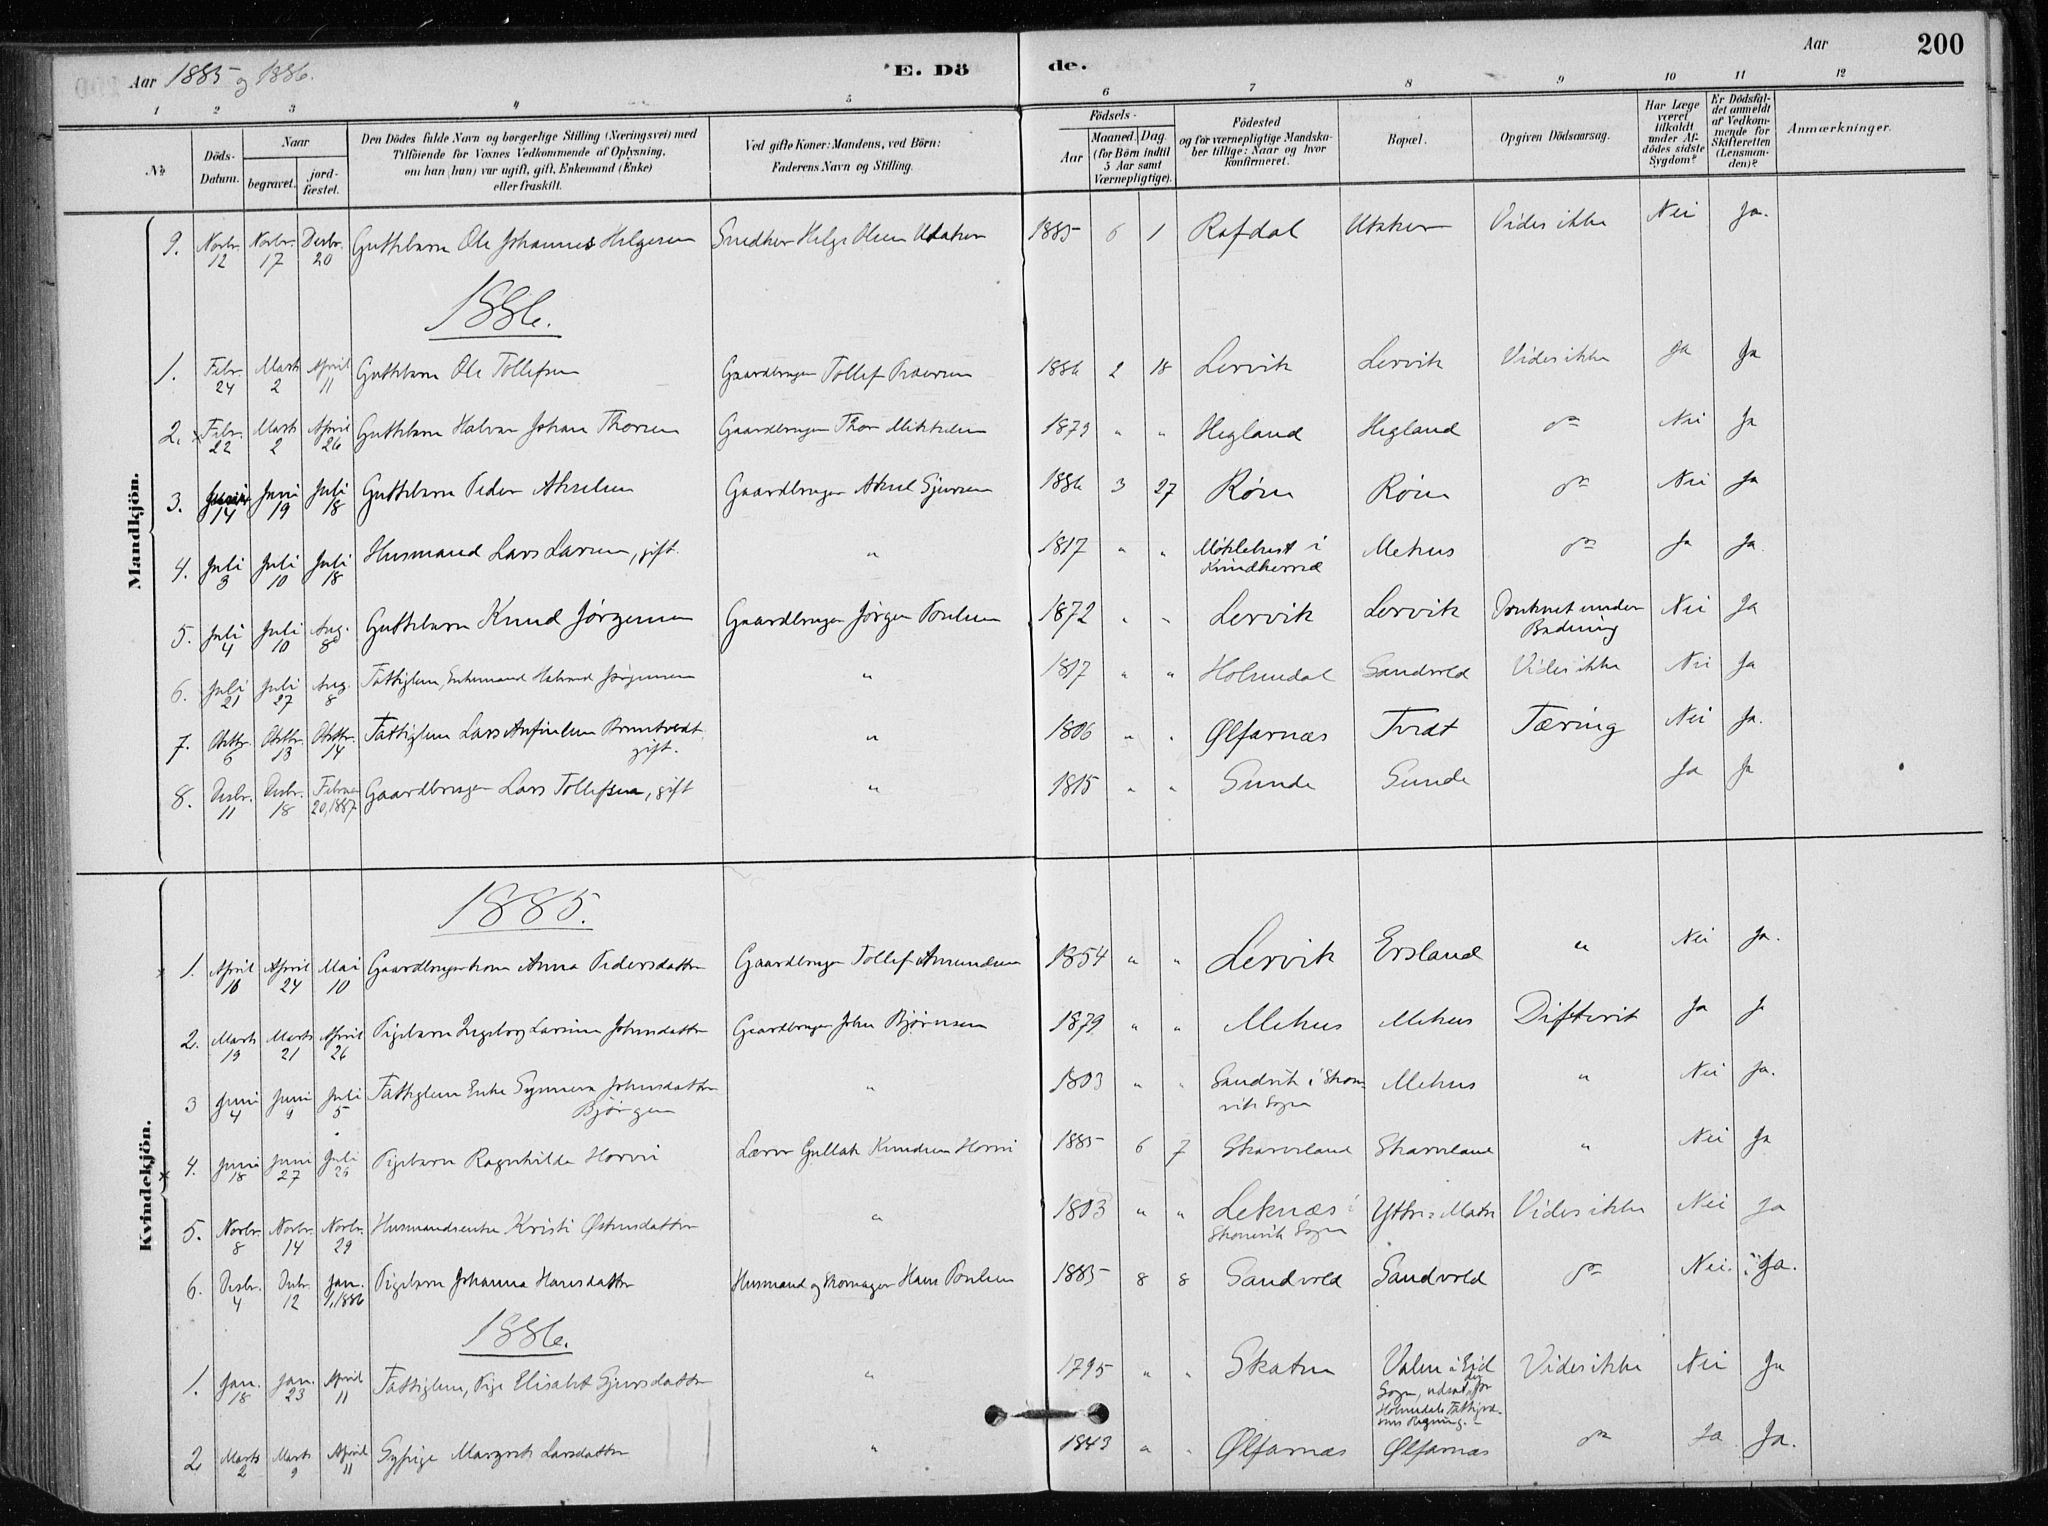 Aar 1885 og 1886. E. Dö de. Aar 200
1 2 3 4 5 6 7 8 9 10 11 12
No. Döds-Datum. Naar begravet. jord-fæstet. Den Dödes fulde Navn og borgerlige Stilling (Næringsvei) med Tilföiende for Voxnes Vedkommende af Oplysning, om han (hun) var ugift, gift, Enkemand (Enke) eller fraskilt. Ved gifte Koner: Mandens, ved Börn: Faderens Navn og Stilling. Födsels- Aar Maaned. Dag. (for Börn indtil 5 Aar samt Værnepligtige). Födested og for værnepligtige Mandska-ber tillige: Naar og hvor konfirmeret. Bopæl. Opgiven Dödsaarsag. Har Læge været tilkaldt under Af-dödes sidste Sygdom? Er Dödsfal-det anmeldt af Vedkom-mende for Skifteretten (Lensman-den)? Anmærkninger.
Mandkjön.
9. Novbr. 12 Novbr. 17 Decbr. 20 Guttebarn Ole Johannes Helgesen Snedker Helge Olsen Utaker 1885 6 1 Rafdal Utaker Vides ikke Nei Ja.
1886.
1. Febr. 24 Marts 2 April 11 Guttebarn Ole Tollefsen Gaardbruger Tollef Pedersen 1886 2 18 Lervik Lervik Vides ikke Ja Ja
2. Febr. 22 Marts 2 April 26 Guttebarn Halvor Johan Thorsen Gaardbruger Thor Mikkelsen 1879 " " Hegland Hegland do Nei Ja
3. Juni 14 Juni 19 Juli 18 Guttebarn Peder Akselsen Gaardbruger Aksel Sjursen 1886 3 27 Røen Røen do Nei Ja
4. Juli 3 Juli 10 Juli 18 Husmand Lars Larsen, gift. " 1817 " " Møklebust i Kvindherred Mehus do Ja Ja.
5. Juli 4 Juli 10 Aug. 8 Guttebarn Knud Jørgensen Gaardbruger Jørgen Poulsen 1872 " " Lervik Lervik Druknet under Badning Nei Ja
6. Juli 21 Juli 27 Aug. 8 Fattiglem, Enkemand Halvord Jørgensen " 1817 " " Holmedal Sandvold Vides ikke Nei Ja
7. Oktbr. 6 Oktbr. 13 Oktbr. 14 Fattiglem Lars Anfinsen gift. " 1806 " " Ølfarnæs Tvedt Tæring Nei Ja.
8. Decbr. 11 Decbr. 18 Februar 20, 1887 Gaardbruger Lars Tollefsen, gift " 1815 " " Sunde Sunde Ja Ja
Kvindekjön.
1885.
1. April 16 April 24 Mai 10 Gaardbrugerkone Anna Pedersdatter Gaardbruger Tollef Amundsen 1854 " " Lervik Ersland " Nei Ja.
2. Marts 19 Marts 21 April 26 Pigebarn Ingeborg Larsine Johnsdatter Gaardbruger John Bjørnsen 1879 " " Mehus Mehus Difterit Ja Ja
3 Juni 4 Juni 9 Juli 5 Fattiglem Enke Synneva Johnsdatter Bjørgen " 1803 " " Sandvik i Skonevik Sogn Mehus " Nei Ja.
4. Juni 18 Juni 27 Juli 26 Pigebarn Ragnhilda Horvei Lærer Gullak Knudsen Horvei 1885 6 7 Skarveland Skarveland " Nei Ja
5. Novbr. 8 Novbr. 14 Novbr. 29 Husmandsenke Kristi Østensdatter " 1803 " " Leknæs i Skonevik Sogn Yttre-Matre Vides ikke Nei Ja
6. Decbr. 4 Decbr. 12 Jan. 1886 Pigebarn Johanna Hansdatter Husmand og Skomager Hans Poulsen 1885 8 8 Sandvold Sandvold do Nei. Ja.
1886.
1. Jan. 18 Jan. 23 April 11 Fattiglem, Pige Elisabet Sjursdatter " 1795 " " Skaten Valen i Eid Sogn, udsat der for Holmedals Fattigvæsens Regning. Vides ikke Nei Ja
2. Marts 2 Marts 9 April 11 Sypige Margrete Larsdatter " 1843 " " Ølfarnæs Ølfarnæs do Ja Ja.